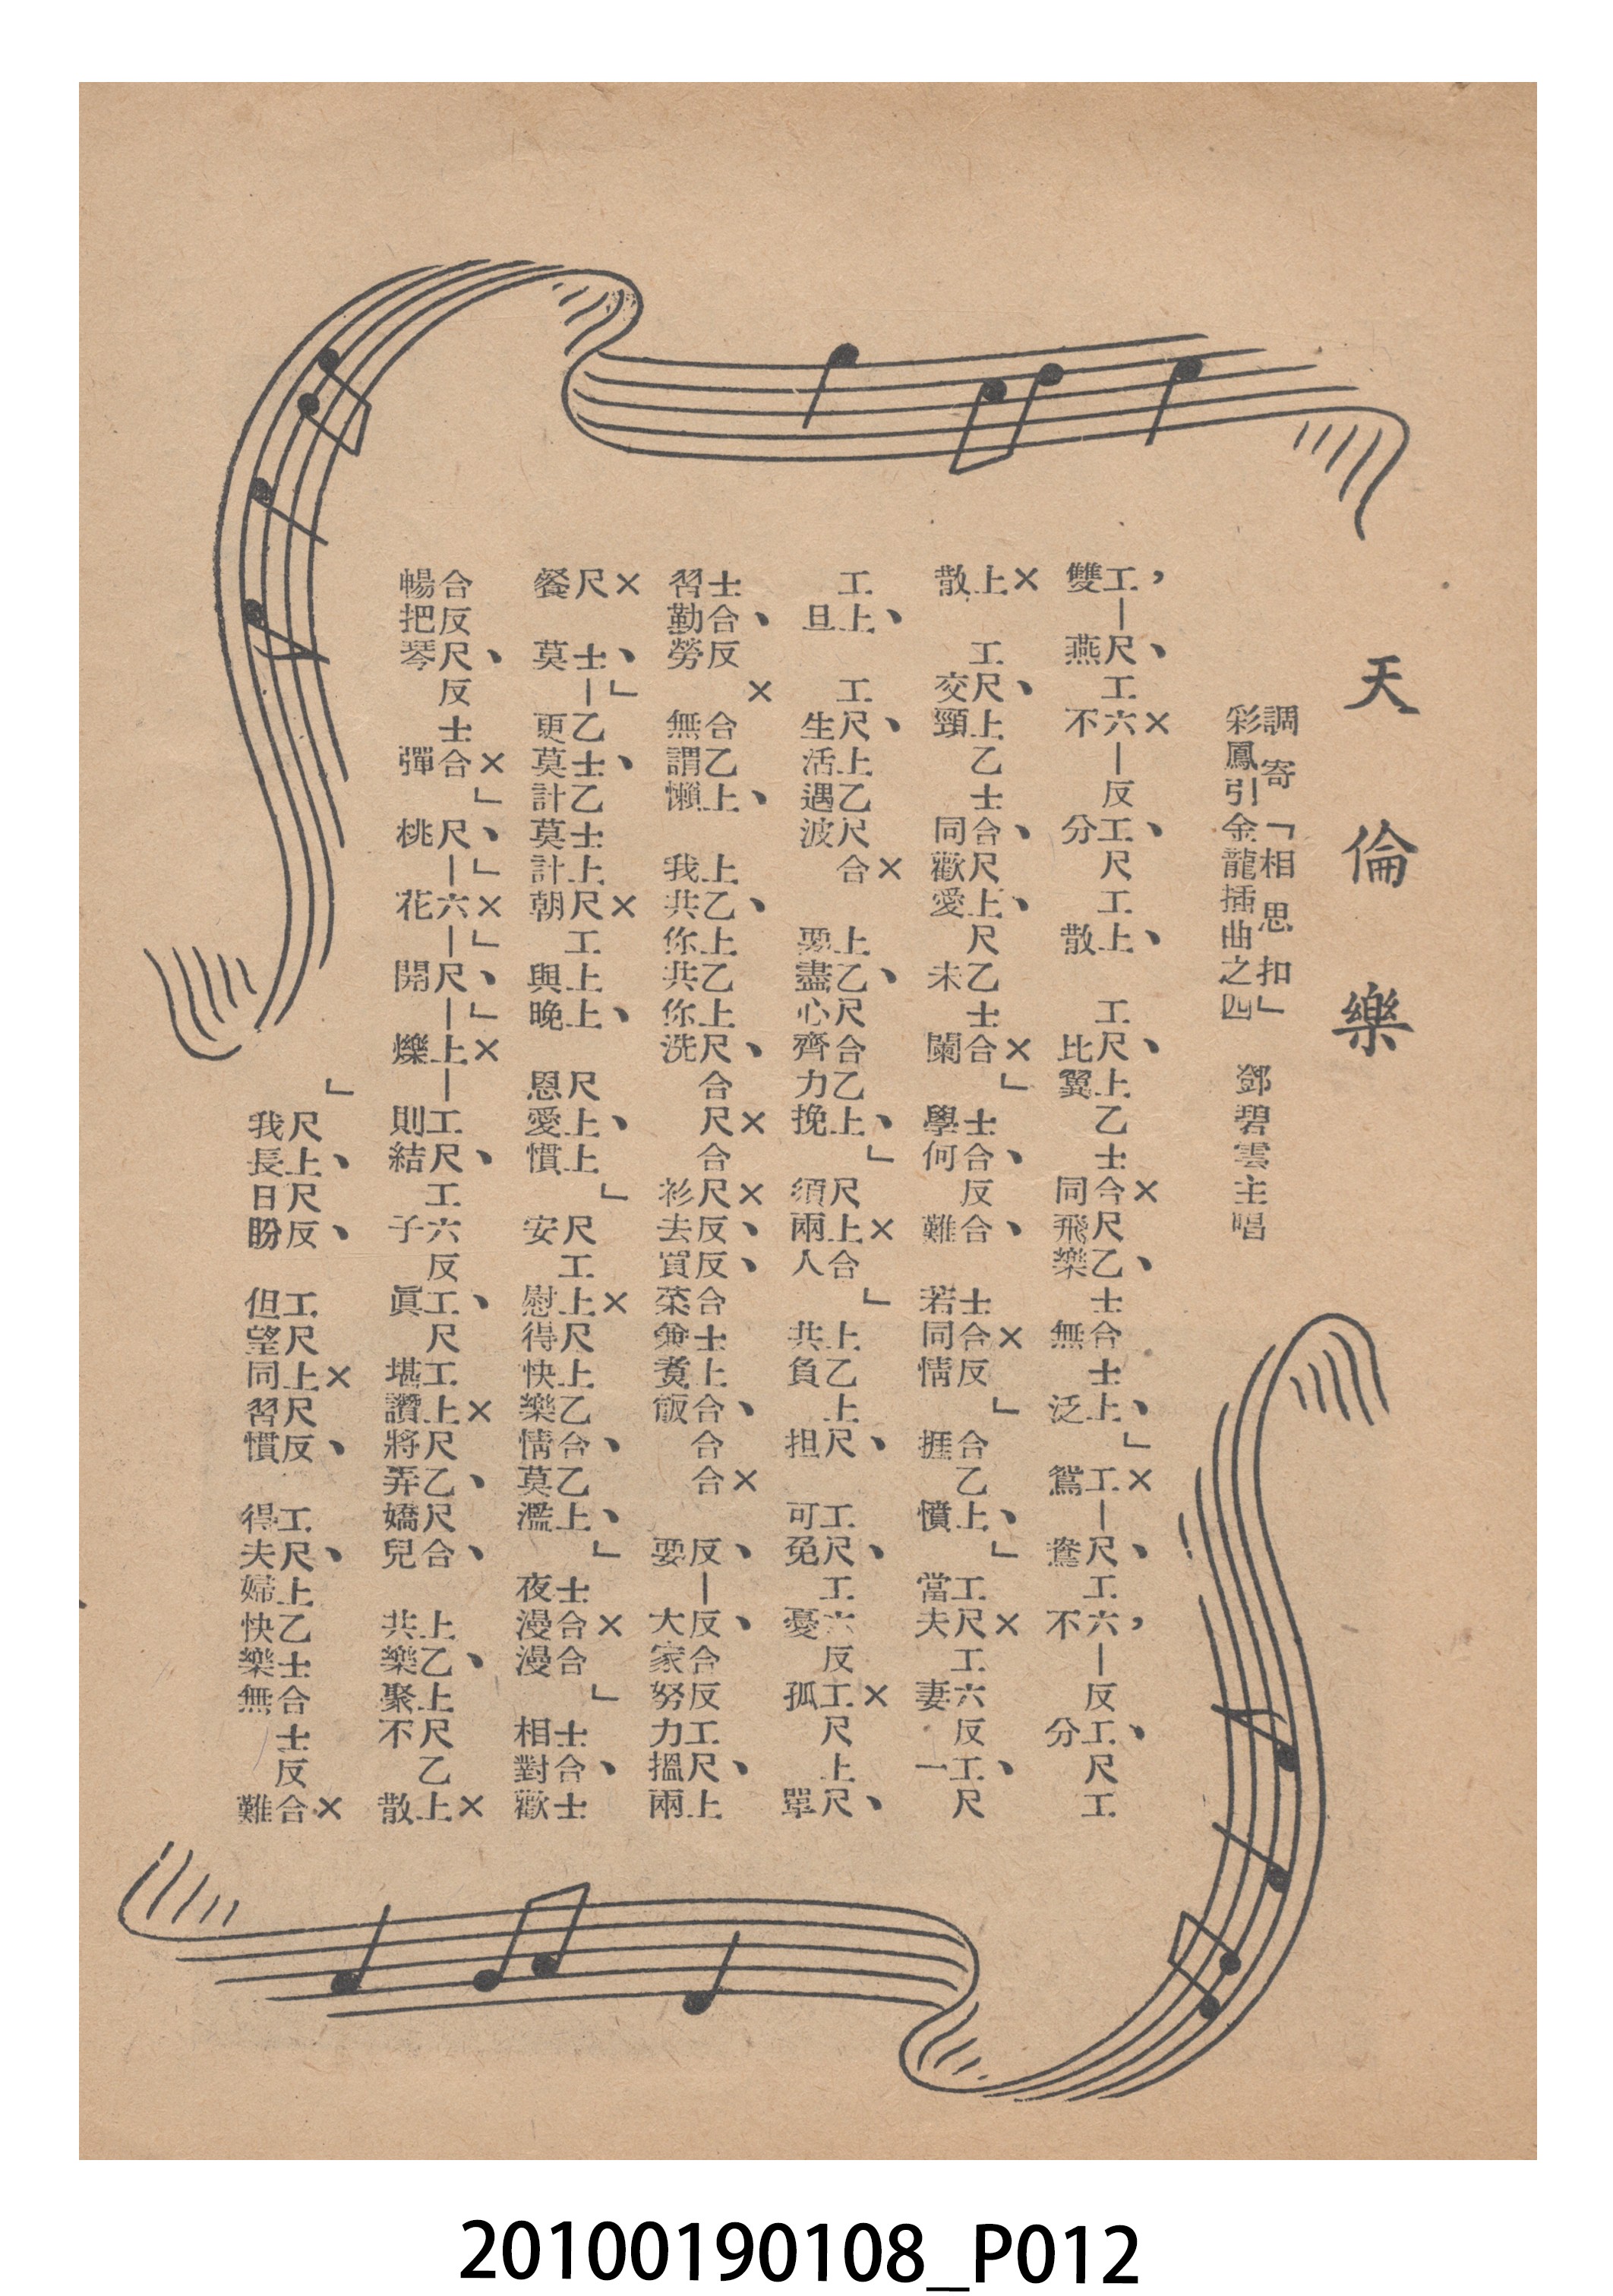 天倫樂
調寄「相思扣」
彩鳳引金龍插曲之四　鄧碧雲主唱
，、×、、、×、、」×、，、
工｜尺工六｜反工尺工上　工尺上乙士合尺乙士合士上　工｜尺工六｜反工尺工
雙燕不分散　比翼同飛樂無泛　鴛鴦不分
×、、、×」、、×」、」×、
上　工尺上乙士合尺上尺乙士合　士合反合　士合反　合乙上　工尺工六反工尺
散　交頸同歡愛未闌　學何難　若同情　捱憤　當夫妻一
、、×、、」×」、、×、
工上　工尺上乙尺合　上乙尺合乙上　尺上合　上乙上尺　工尺工六反工尺上尺
旦　生活遇波　要盡心齊力挽　須兩人　共負担　可免憂孤單
、×、、、××、、、×、、、
士合反　合乙上　上乙上乙上尺合尺合尺反反合士上合合合　反｜反合反工尺上
習勤勞　無謂懶　我共你共你洗衫去買菜兼煑飯　要大家努力搵兩
×、」、×、、」×、、」×」、
尺　士｜乙士乙士上尺工上上　尺上上　尺工上尺上乙合乙上　士合合　士合士
餐　莫更莫計莫計朝與晚　恩愛慣　安慰得快樂情莫濫　夜漫漫　相對歡
、×」、」×」、」×、、×、、、×
合反尺反士合　尺｜六｜尺｜上｜工尺工六反工尺工上尺乙尺合　上乙上尺乙上
暢把琴彈　桃花開爍則結子眞堪讚將弄嬌兒　共樂聚不散
」、、×、、×
尺上尺反　工尺上尺反　工尺上乙士合士反合
我長日盼　但望同習慣　得夫婦快樂無難
20100190108_P012